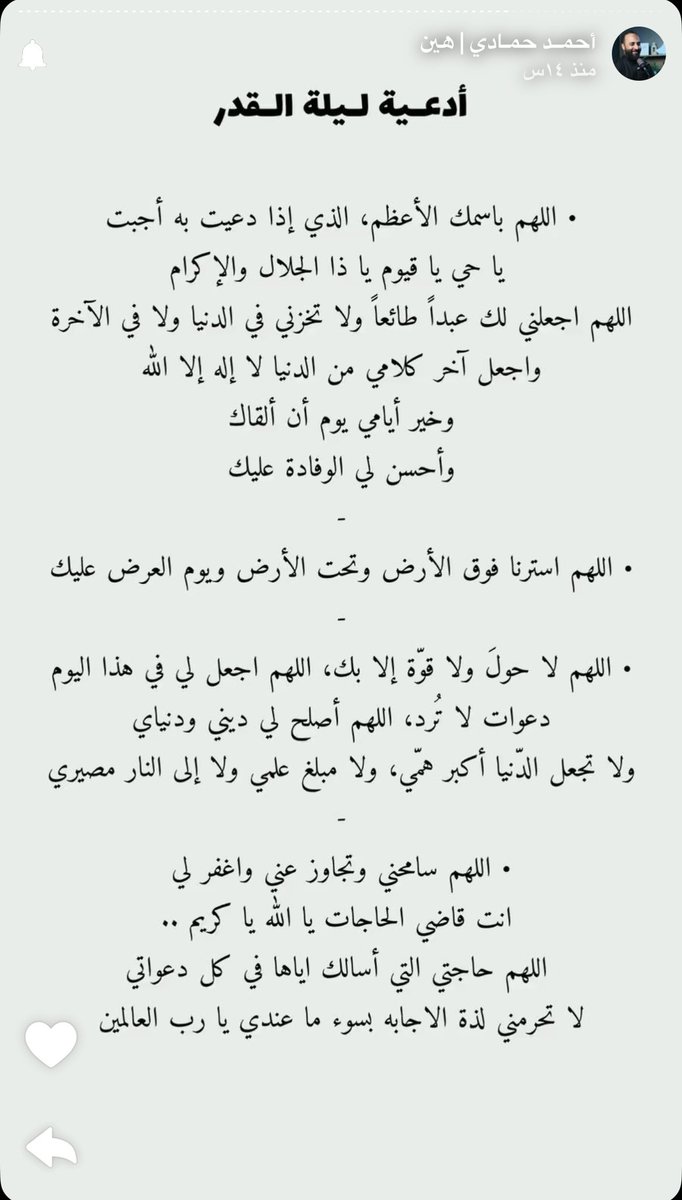 أحمـد حمـادي | هين
منذ ١٤س
أدعـية لـيلة الـقدر
• اللهم باسمك الأعظم، الذي إذا دعيت به أجبت
يا حي يا قيوم يا ذا الجلال والإكرام
اللهم اجعلني لك عبداً طائعاً ولا تخزني في الدنيا ولا في الآخرة
واجعل آخر كلامي من الدنيا لا إله إلا الله
وخير أيامي يوم أن ألقاك
وأحسن لي الوفادة عليك
-
• اللهم استرنا فوق الأرض وتحت الأرض ويوم العرض عليك
-
• اللهم لا حولَ ولا قوّة إلا بك، اللهم اجعل لي في هذا اليوم
دعوات لا تُرد، اللهم أصلح لي ديني ودنياي
ولا تجعل الدّنيا أكبر همّي، ولا مبلغ علمي ولا إلى النار مصيري
-
• اللهم سامحني وتجاوز عني واغفر لي
انت قاضي الحاجات يا الله يا كريم ..
اللهم حاجتي التي أسالك اياها في كل دعواتي
لا تحرمني لذة الاجابه بسوء ما عندي يا رب العالمين